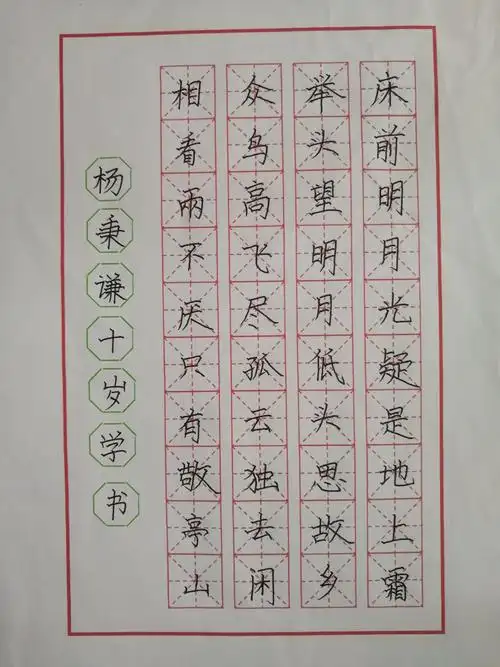 床前明月光疑是地上霜
举头望明月低头思故乡
众鸟高飞尽孤云独去闲
相看兩不厌只有敬亭山
杨秉谦十岁学书